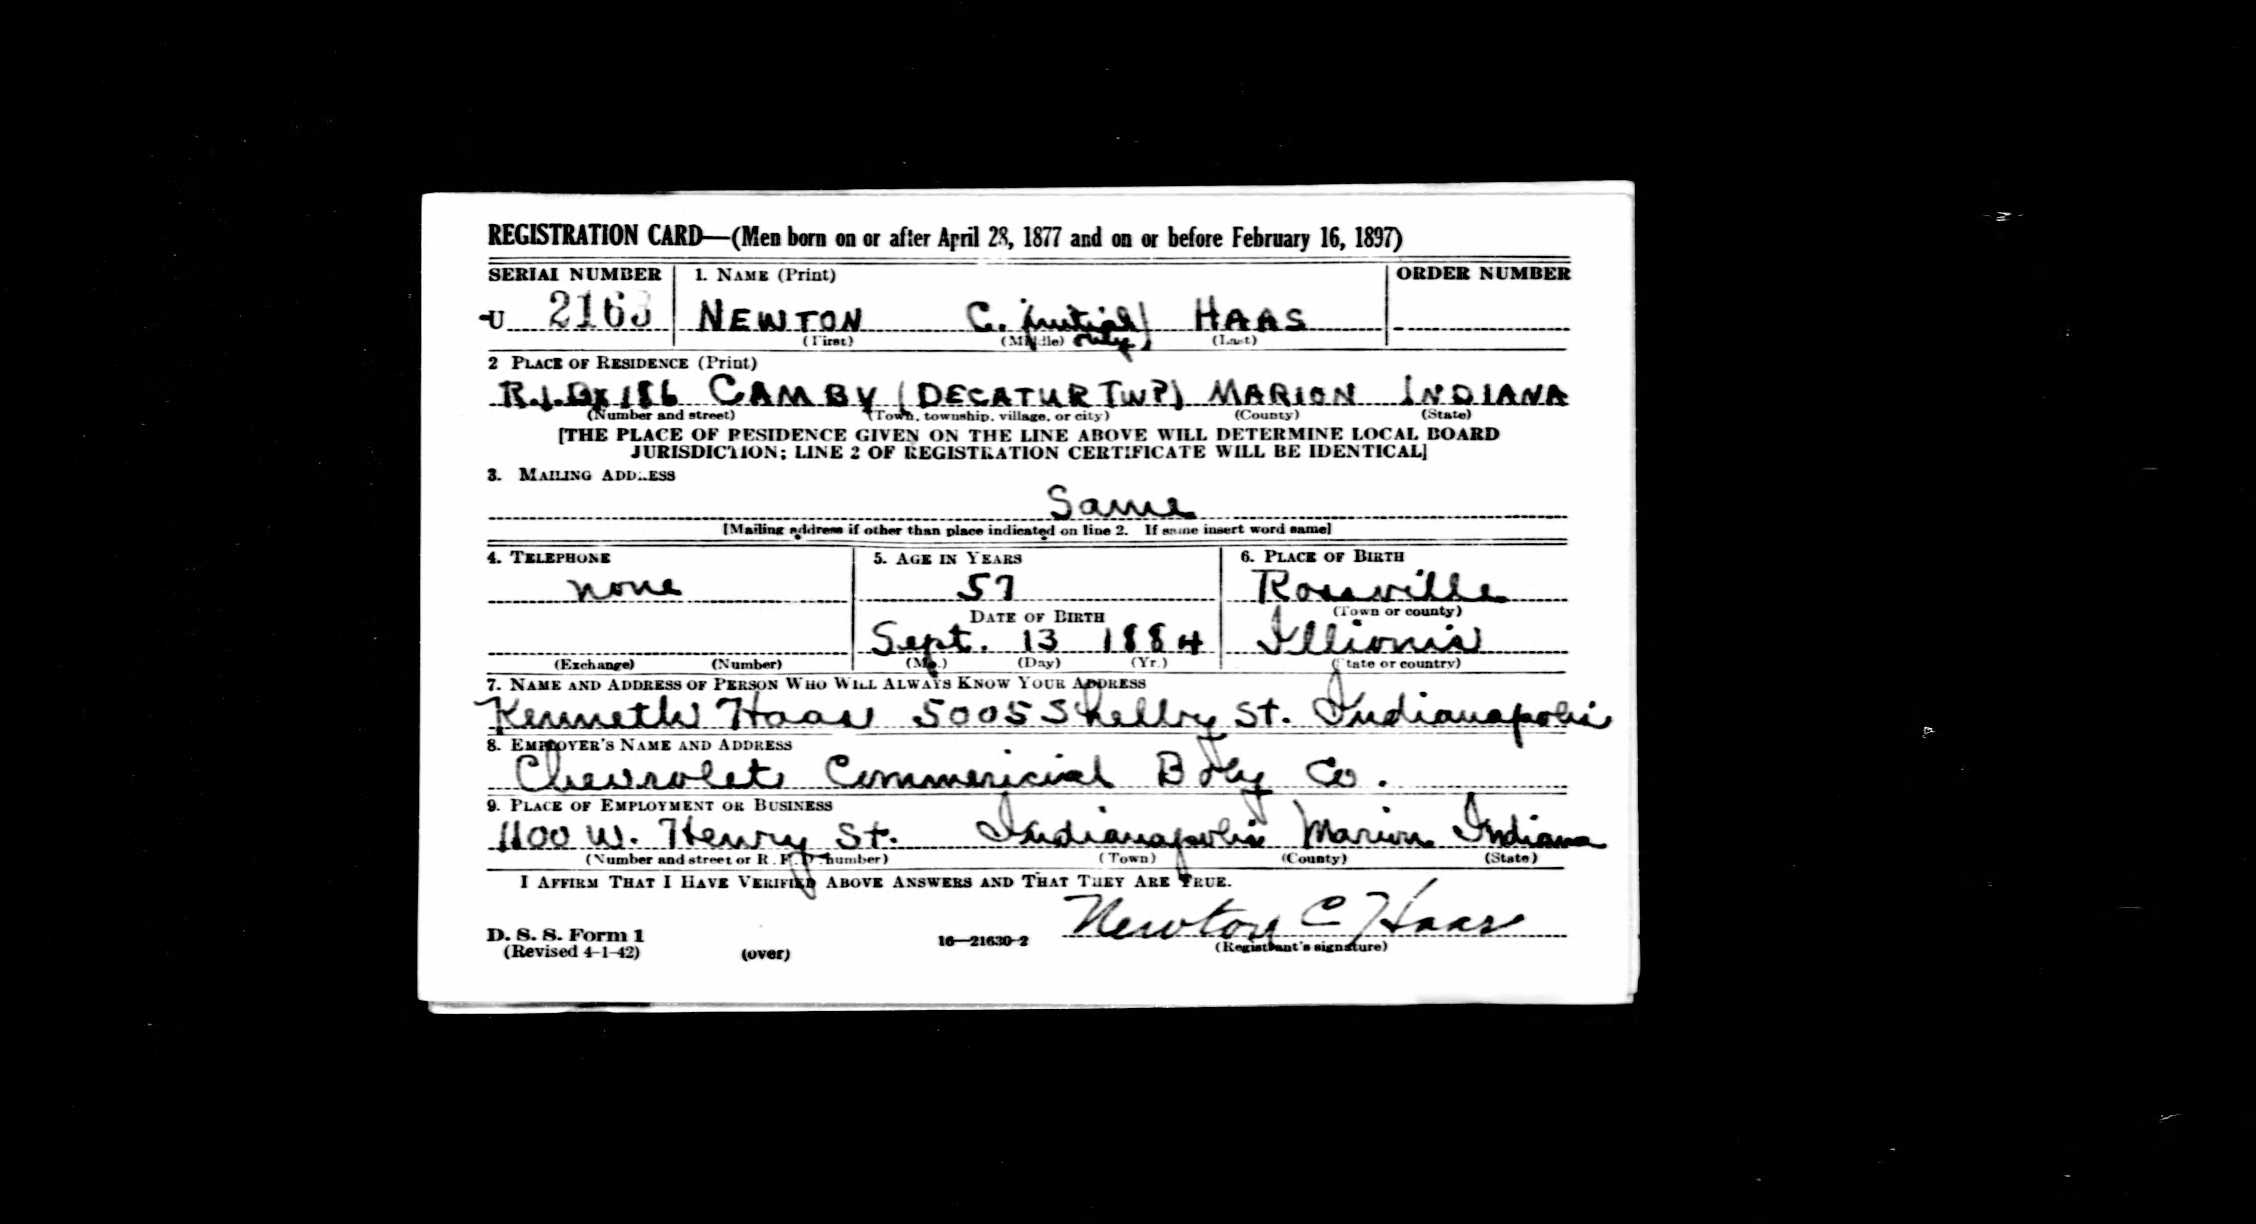 REGISTRATION CARD—(Men born on or after April 28, 1877 and on or before February 16, 1897)
SERIAL NUMBER 1. NAME (Print) ORDER NUMBER
U 2163 NEWTON C. (initial only) HAAS
(First) (Middle) (Last)
2 PLACE OF RESIDENCE (Print)
R.1.Bx 186 CAMBY (DECATUR TWP) MARION INDIANA
(Number and street) (Town, township, village, or city) (County) (State)
[THE PLACE OF RESIDENCE GIVEN ON THE LINE ABOVE WILL DETERMINE LOCAL BOARD
JURISDICTION; LINE 2 OF REGISTRATION CERTIFICATE WILL BE IDENTICAL]
3. MAILING ADDRESS
Same
[Mailing address if other than place indicated on line 2. If same insert word same]
4. TELEPHONE 5. AGE IN YEARS 6. PLACE OF BIRTH
none 57 Rossville
DATE OF BIRTH (Town or county)
Sept. 13 1884 Illionis
(Exchange) (Number) (Mo.) (Day) (Yr.) (State or country)
7. NAME AND ADDRESS OF PERSON WHO WILL ALWAYS KNOW YOUR ADDRESS
Kenneth Haas 5005 Shelby St. Indianapolis
8. EMPLOYER'S NAME AND ADDRESS
Chevrolet Commericial Body Co.
9. PLACE OF EMPLOYMENT OR BUSINESS
1100 W. Henry St. Indianapolis Marion Indiana
(Number and street or R. F. D. number) (Town) (County) (State)
I AFFIRM THAT I HAVE VERIFIED ABOVE ANSWERS AND THAT THEY ARE TRUE.
Newton C Haas
D. S. S. Form 1
(Revised 4-1-42) (over) 16—21630-2 (Registrant's signature)